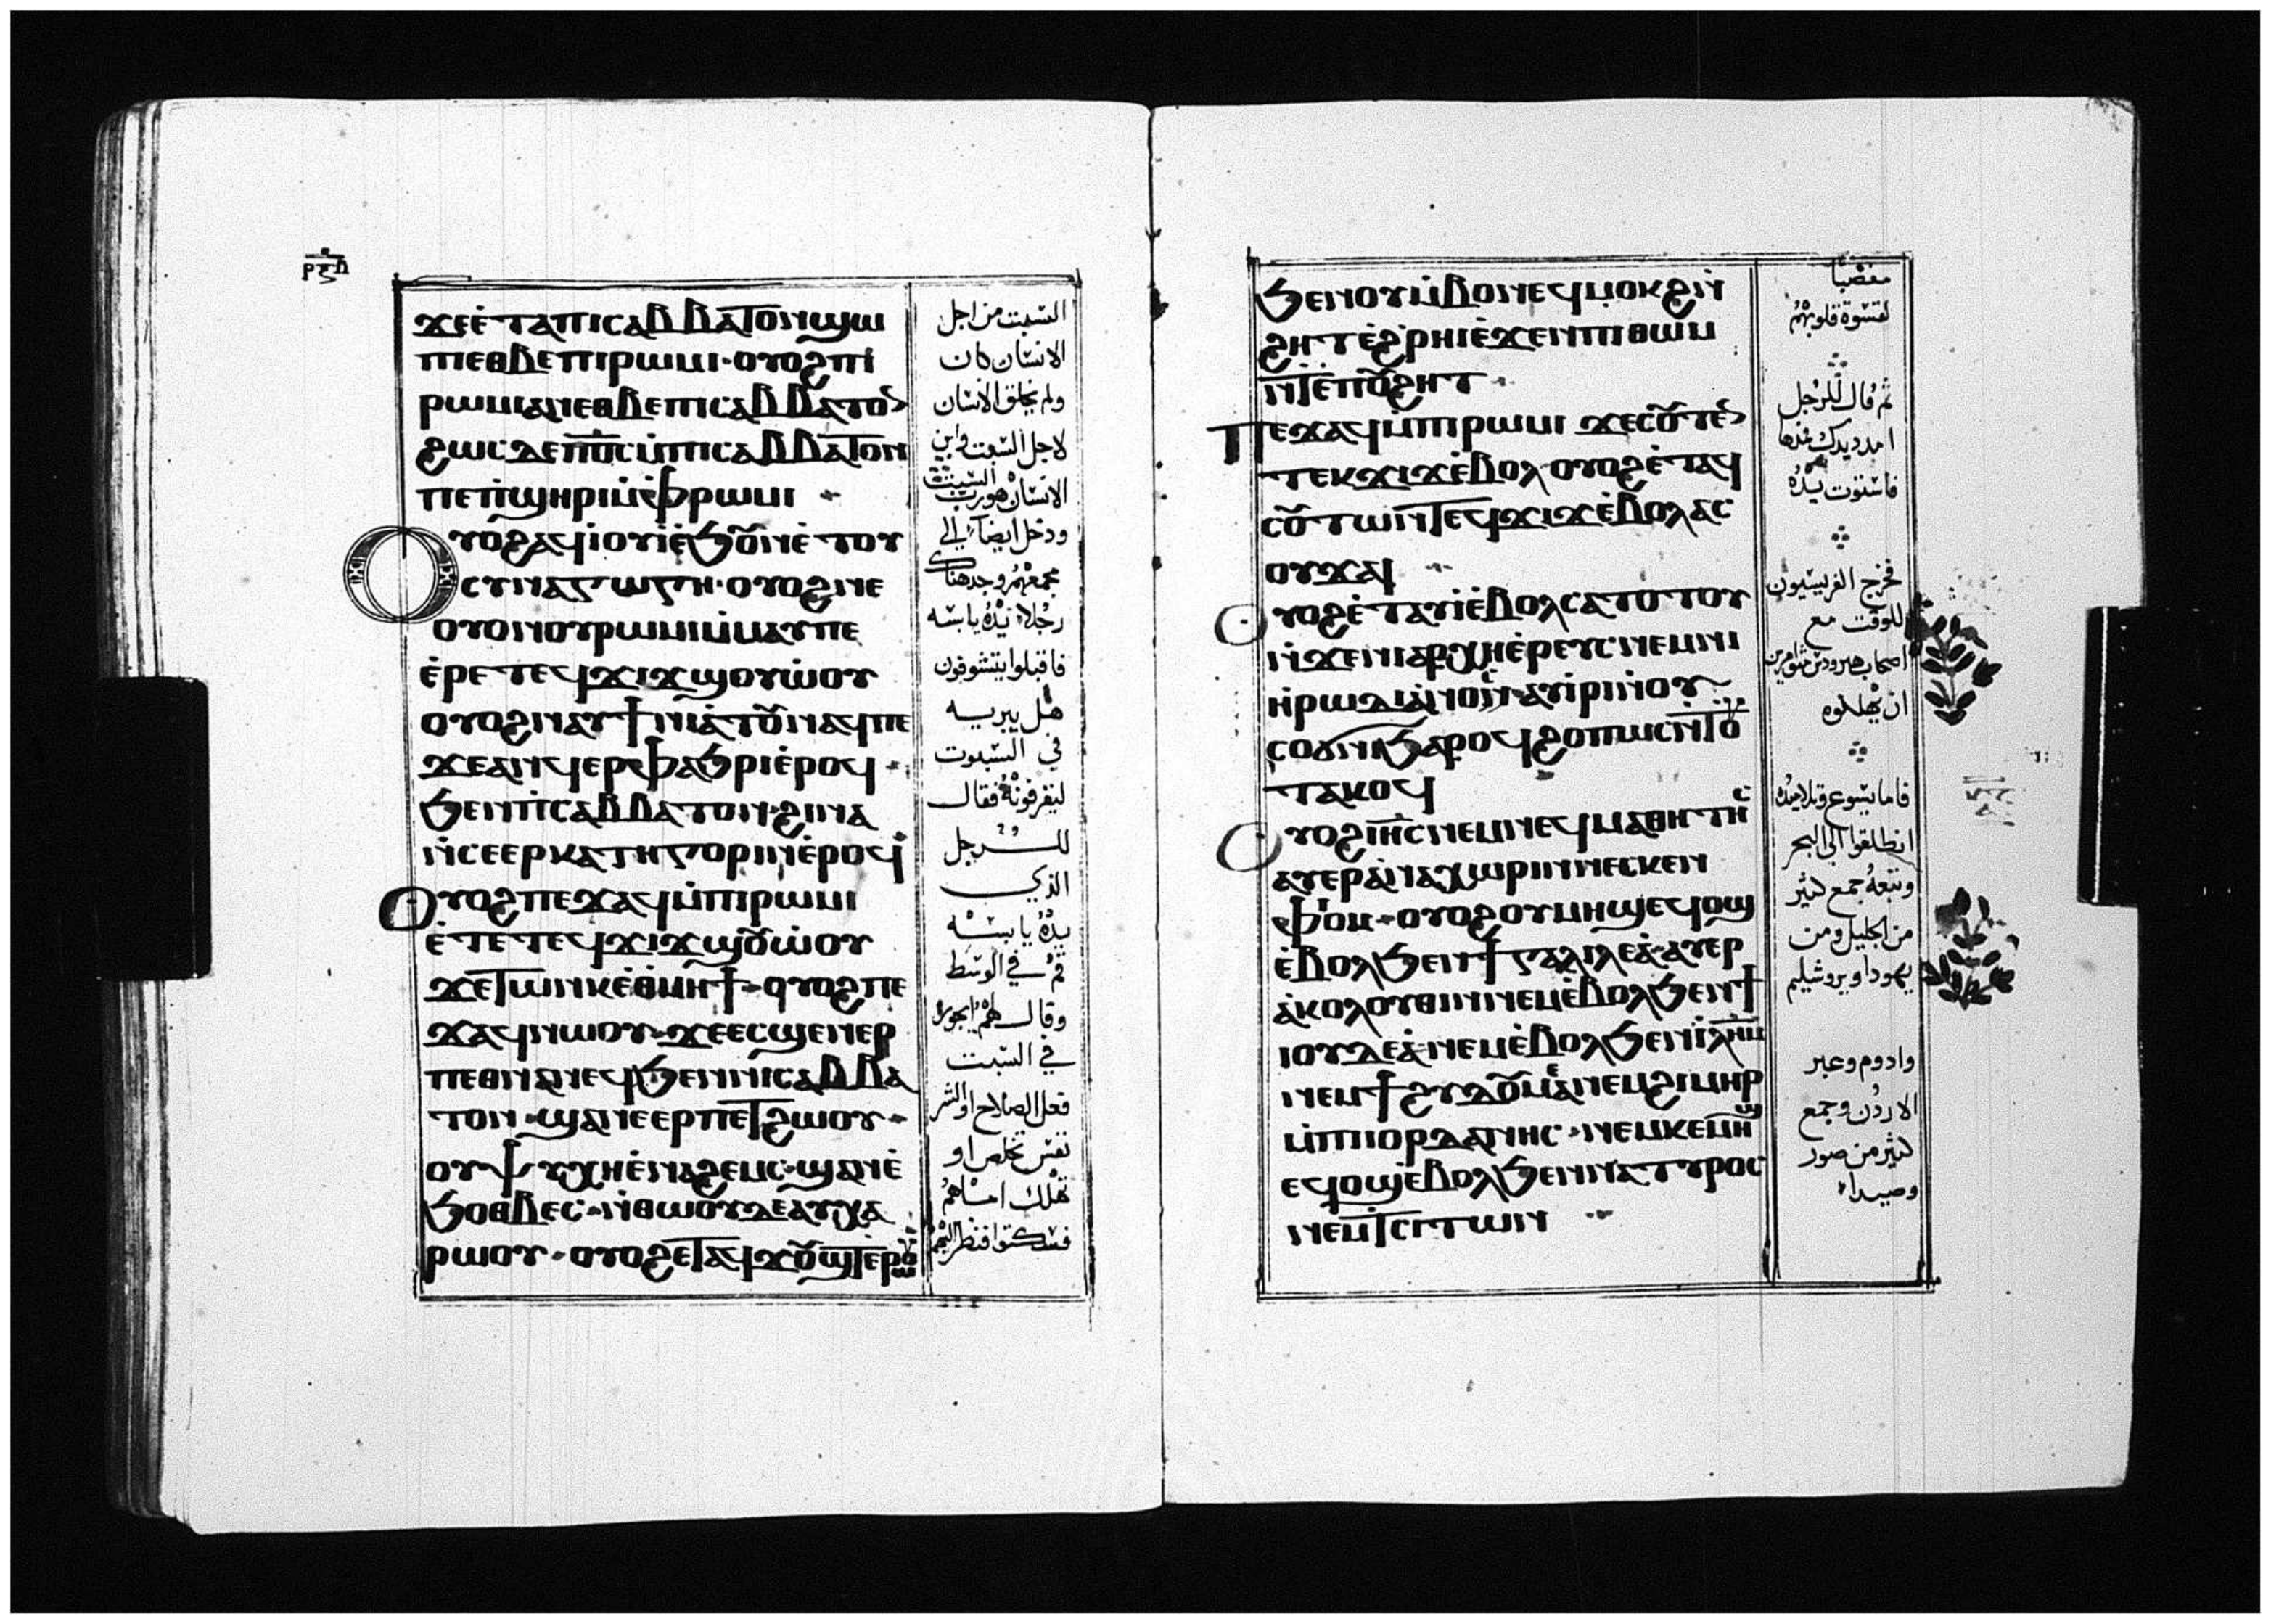 ϫⲉⲉ̀ⲧⲁⲡⲓⲥⲁⲃⲃⲁⲧⲟⲛϣⲱ
ⲡⲓⲉⲑⲃⲉⲡⲓⲣⲱⲙⲓ· ⲟⲩⲟϩⲡⲓ
ⲣⲱⲙⲓⲁⲛⲉⲑⲃⲉⲡⲓⲥⲁⲃⲃⲁⲧⲟ
ϩⲱⲥⲇⲉⲡⲟ̅ⲥ̅ⲙ̀ⲡⲓⲥⲁⲃⲃⲁⲧⲟⲛ
ⲡⲉⲡ̀ϣⲏⲣⲓⲙ̀ⲫ̀ⲣⲱⲙⲓ
ⲟⲩⲟϩⲁϥⲓ̀ⲟⲩⲓ̀ⲉ̀ϧⲟⲩⲛⲉ̀ⲧⲟⲩ
ⲥⲩⲛⲁⲅⲱⲅⲏ· ⲟⲩⲟϩⲛⲉ
ⲟⲩⲟⲛⲟⲩⲣⲱⲙⲓⲙ̀ⲙⲁⲩⲡⲉ
ⲉ̀ⲣⲉⲧⲉϥϫⲓϫϣⲟⲩⲱ̀ⲟⲩ
ⲟⲩⲟϩⲛⲁⲩϯⲛⲓⲁ̀ⲧⲟⲩⲛⲁϥⲡⲉ
ϫⲉⲁⲛϥⲉⲣⲫⲁϧⲣⲓⲉ̀ⲣⲟϥ
ϧⲉⲛⲡⲓⲥⲁⲃⲃⲁⲧⲟⲛ· ϩⲓⲛⲁ
ⲛ̀ⲥⲉⲉⲣⲕⲁⲧⲏⲅⲟⲣⲓⲛⲉ̀ⲣⲟϥ
ⲟⲩⲟϩⲡⲉϫⲁϥⲙ̀ⲡⲓⲣⲱⲙⲓ
ⲉ̀ⲧⲉⲧⲉϥϫⲓϫϣⲟⲩⲱ̀ⲟⲩ
ϫⲉⲧⲱⲛⲕⲉ̀ⲑ̀ⲙⲏϯ· ⲟⲩⲟϩⲡⲉ
ϫⲁϥⲛⲱⲟⲩ· ϫⲉⲉⲥϣⲉⲛⲉⲣ
ⲡⲉⲑⲛⲁⲛⲉϥϧⲉⲛⲛⲓⲥⲁⲃⲃⲁ
ⲧⲟⲛ· ϣⲁⲛⲉⲉⲣⲡⲉⲧϩⲱⲟⲩ·
ⲟⲩⲯⲩⲭⲏⲉ̀ⲛⲁϩⲉⲙⲥ· ϣⲁⲛⲉ̀
ϧⲟⲑⲃⲉⲥ· ⲛ̀ⲑⲱⲟⲩⲇⲉⲁⲩⲭⲁ
ⲣⲱⲟⲩ· ⲟⲩⲟϩⲉⲧⲁϥϫⲟⲩϣⲧⲉ̀ⲣⲱⲟⲩ
السبت من اجل
الانسان كان
ولم يخلق الانسان
لاجل السبت وابن
الانسان هو رب السبت
ودخل ايضا الي
مجمعهم وجد هناك
رجلا يده يابسه
فاقبلوا يتشوفون
هل يبريه
في السبوت
ليقرفونه فقال
للرجل
الذي
يده يابسه
قم في الوسط
وقال لهم ايجوز
في السبت
فعل الصلاح او الشر
نفس تخلص او
تهلك امساهم
فسكتوا فنظر اليهم
ϧⲉⲛⲟⲩⲙ̀ⲃⲟⲛⲉϥⲙⲟⲕϩⲛ̀
ϩⲏⲧⲉ̀ϩ̀ⲣⲏⲓⲉ̀ϫⲉⲛⲡⲓⲑⲱⲙ
ⲛ̀ⲧⲉⲡⲟⲩϩⲏⲧ
ⲡⲉϫⲁϥⲙ̀ⲡⲓⲣⲱⲙⲓ ϫⲉⲥⲟⲩⲧⲉⲛ
ⲧⲉⲕϫⲓϫⲉ̀ⲃⲟⲗ ⲟⲩⲟϩⲉ̀ⲧⲁϥ
ⲥⲟⲩⲧⲱⲛⲧⲉϥϫⲓϫⲉ̀ⲃⲟⲗⲁⲥ
ⲟⲩϫⲁⲓ
ⲟⲩⲟϩⲉ̀ⲧⲁⲩⲓ̀ⲉ̀ⲃⲟⲗⲥⲁⲧⲟⲧⲟⲩ
ⲛ̀ϫⲉⲛⲓⲁⲣⲭⲏⲉ̀ⲣⲉⲩⲥ· ⲛⲉⲙⲛⲓ
ⲏ̀ⲣⲱⲇⲓⲁ̀ⲛⲟⲥ· ⲁⲩⲓ̀ⲣⲓⲛ̀ⲟⲩ
ⲥⲟϭⲛⲓϧⲁⲣⲟϥϩⲟⲡⲱⲥⲛ̀ⲧⲟⲩ
ⲧⲁⲕⲟϥ
ⲟⲩⲟϩⲓⲏ̅ⲥ̅ⲛⲉⲙⲛⲉϥⲙⲁⲑⲏⲧⲏⲥ
ⲁⲩⲉⲣⲁ̀ⲛⲁⲭⲱⲣⲓⲛⲛⲉⲥⲕⲉⲛ
ⲫ̀ⲓⲟⲙ· ⲟⲩⲟϩⲟⲩⲙⲏϣⲉϥⲟϣ
ⲉ̀ⲃⲟⲗϧⲉⲛϯⲅⲁⲗⲓⲗⲉⲁ̀· ⲁⲩⲉⲣ
ⲁ̀ⲕⲟⲗⲟⲩⲑⲓⲛⲛⲉⲙⲉ̀ⲃⲟⲗϧⲉⲛϯ
ⲓⲟⲩⲇⲉⲁ̀ⲛⲉⲙⲉ̀ⲃⲟⲗϧⲉⲛⲓ̅ⲗ̅ⲏ̅ⲙ̅
ⲛⲉⲙϯϩⲩⲇⲟⲩⲙⲉⲁ̀ⲛⲉⲙϩⲓⲙⲏⲣ
ⲙ̀ⲡⲓⲓⲟⲣⲇⲁⲛⲏⲥ· ⲛⲉⲙⲕⲉⲙⲏϣ
ⲉϥⲟϣⲉ̀ⲃⲟⲗϧⲉⲛⲛⲁⲧⲩⲣⲟⲥ
ⲛⲉⲙⲧⲥⲓⲧⲱⲛ
مغضبا
لقسوة قلوبهم
ثم قال للرجل
امدد يدك فمدها
فاستوت يده
فخرج الفريسيون
للوقت مع
اصحاب هيرودس متوامرين
ان يهلكوه
فاما يسوع وتلاميذه
انطلقوا الي البحر
وتبعه جمع كثير
من الجليل ومن
يهودا ويروشليم
وادوم وعبر
الاردن وجمع
كثير من صور
وصيدا